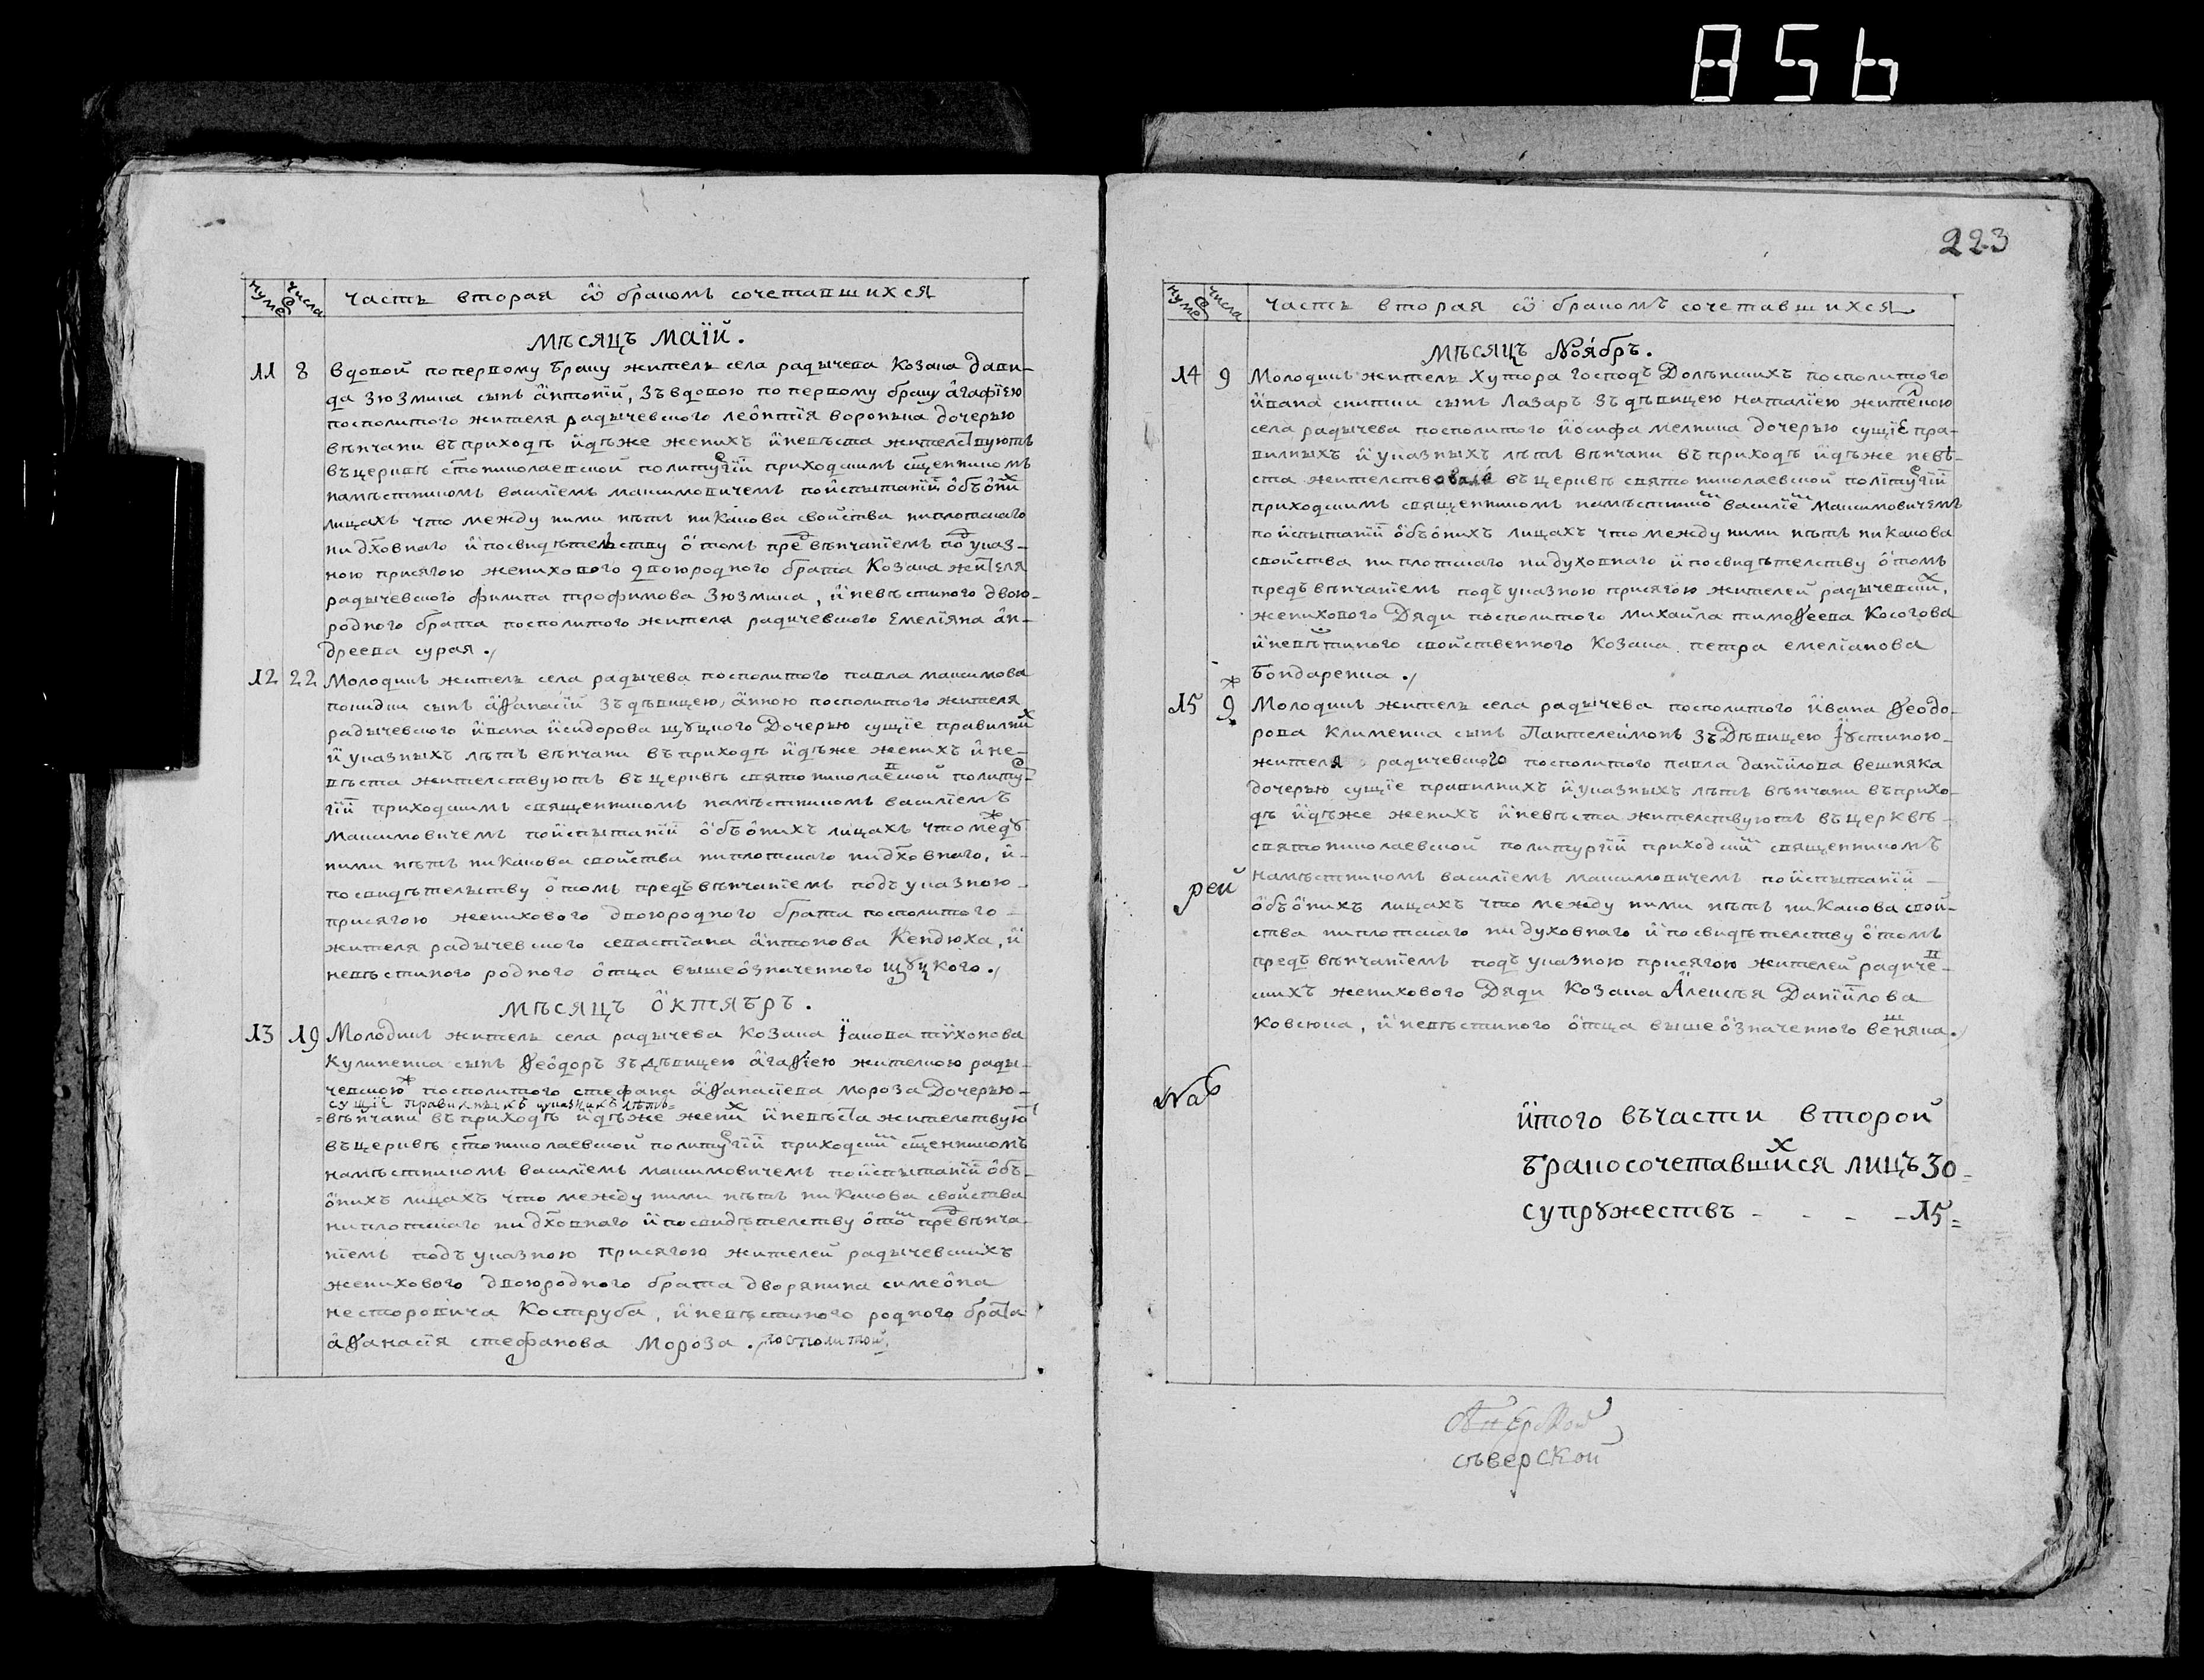 856
223
нумеръ
числа
часть вторая ѿ бракомъ сочетавшихся
мѣсяцъ маїй.
11 8 вдовой поперво́му браку житель села радычева козака дави-
да зюзмика сынъ антонїй, зъвдовою по первому браку агафїею
посполитого жителя радычевского леонтїя воронька дочерью
вѣнчани въприходѣ идѣже женихъ иневѣста жителствуютъ
въцерквѣ стониколаевской политургїй приходскимъ сщенникомъ
намѣстникомъ василїемъ максимовичемъ поиспытанїй объоних
лицахъ что между ними нѣтъ никакова свойства ниплотскаго
нидховнаго ипосвидѣтельству отомъ пред вѣнчанїемъ под указ-
ною присягою женихового двоюродного брата козака жителя
радычевского филипа трофимова зюзмика, иневѣстиного двою-
родного брата посполитого жителя радичевского емелїяна ан-
дреева сурая.
12 22 Молодикъ житель села радычева посполитого павла максимова
сынъ аѳанасїй зъдѣвицею, анною посполитого жителя
радычевского ивана исидорова щуцкого дочерью сущїе правилних
иуказныхъ лѣтъ вѣнчани въприходѣ идѣже женихъ ине-
вѣста жителствуютъ въцерквѣ святониколаевской политур-
гїй приходскимъ священникомъ намѣстникомъ василїемъ
максимовичемъ поиспытанїй объонихъ лицахъ что между
ними нѣтъ никакова свойства ниплотскаго нидховнаго, и-
посвидѣтельству отомъ предъвѣнчанїемъ подъуказною
присягою женихового двоюродного брата посполитого
жителя радычевского севастїана антонова Кендюха, и
невѣстиного родного отца вышеозначенного щуцкого.
мѣсяцъ октябръ.
13 19 Молодикъ житель села радычева козака іакова тѵхонова
кулиненка сынъ ѳеодоръ зъдѣвицею агаѳїею жителкою рады-
чевскою посполитого стефана аѳанасїева мороза дочерью
сущїе правилныхъ иуказнихъ лѣтъ
вѣнчани въприходѣ идѣже жених иневѣста жителствуют
въцерквѣ стониколаевской политургїй приходским сщенникомъ
намѣстникомъ василїемъ максимовичемъ поиспытанїй объ-
онихъ лицахъ что между ними нѣтъ никакова свойства
ниплотскаго нидховнаго ипосвидѣтелству отом пред вѣнча-
нїемъ подъуказною присягою жителей радычевскихъ
женихового двоюродного брата дворянина симеона
несторовича Коструба, иневѣстиного родного брата
аѳанасїя стефанова Мороза. посполитой
нумеръ
числа
часть вторая ѿ бракомъ сочетавшихся
мѣсяцъ Ноябръ.
14 9 Молодикъ житель хутора господъ Долѣнскихъ посполитого
ивана снитки сынъ Лазаръ зъдѣвицею наталїею жителкою
села радычева посполитого иосифа мелника дочерью сущїе пра-
вилныхъ иуказныхъ лѣтъ вѣнчани въприходѣ идѣже невѣ-
ста въцерквѣ свято николаевской політургїй
приходскимъ священникомъ намѣстником василїем Максимовичемъ
поиспытанїй объонихъ лицахъ что между ними нѣтъ никакова
свойства ниплотскаго нидуховнаго ипосвидѣтелству отомъ
предъвѣнчанїемъ подъуказною присягою жителей радычевских,
женихового Дяди посполитого михайла тимоѳеева Косогова
иневѣстиного свойственного козака петра емелїанова
Бондаренка.
15 9 Молодикъ житель села радычева посполитого ивана ѳеодо-
рова клименка сынъ Пантелеимонъ зъДѣвицею іустиною
жителя радичевского посполитого павла данїилова вешняка
дочерью сущїе правилнихъ иуказныхъ лѣтъ вѣнчани въприхо-
дѣ идѣже женихъ иневѣста жителствуютъ въцерквѣ
святониколаевской политургїй приходским священникомъ
намѣстникомъ василїемъ максимовичемъ поиспытанїй
объонихъ лицахъ что между ними нѣтъ никакова свой-
ства ниплотскаго нидуховнаго ипосвидѣтелству отомъ
предъвѣнчанїемъ подъуказною присягою жителей радиче-
скихъ женихового Дяди козака Алексѣя Данїилова
ковсюка, иневѣстиного отца вышеозначенного вешняка.
рей
итого въчасти второй
бракосочетавшихся лицъ 30
супружествъ - - - - 15
сѣверской